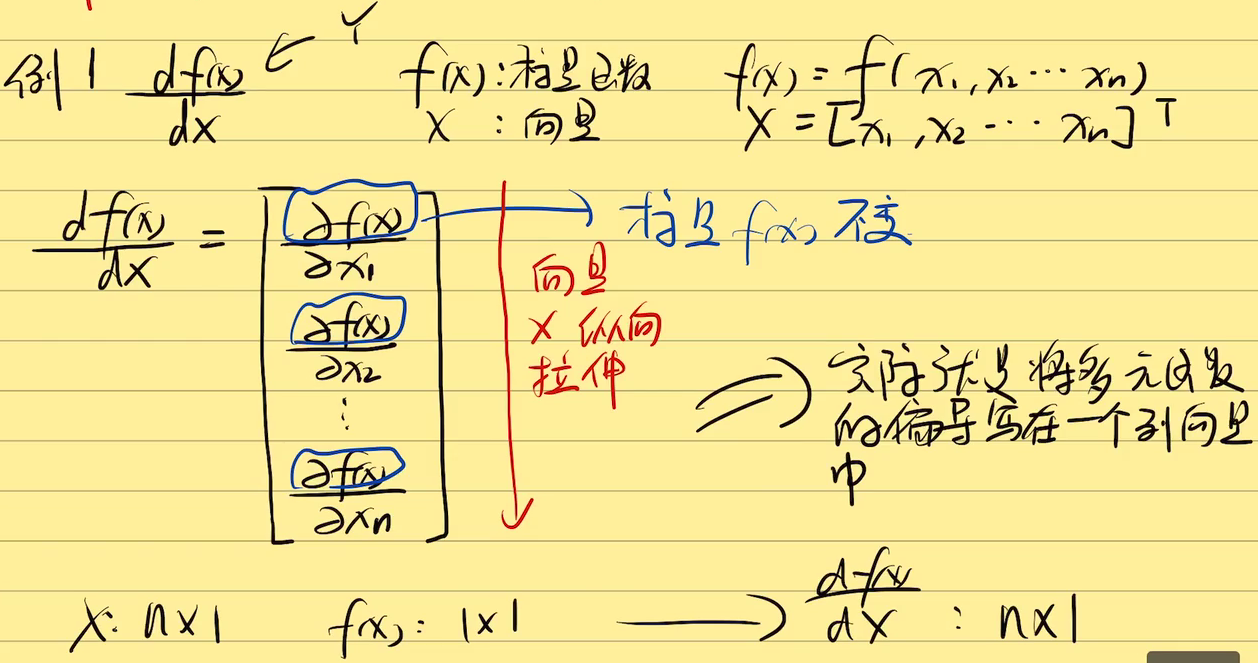 例1 df(x)/dx ← Y f(x):标量函数 f(x) = f(x₁,x₂…xₙ)
X :向量 X = [x₁,x₂…xₙ]ᵀ
df(x)/dx = [∂f(x)/∂x₁ → 标量f(x)不变
∂f(x)/∂x₂
⋮
∂f(x)/∂xₙ]
向量
X 纵向
拉伸
⇒ 实际就是将多元函数
的偏导写在一个列向量
中
X: n×1 f(x): 1×1 → df(x)/dX : n×1